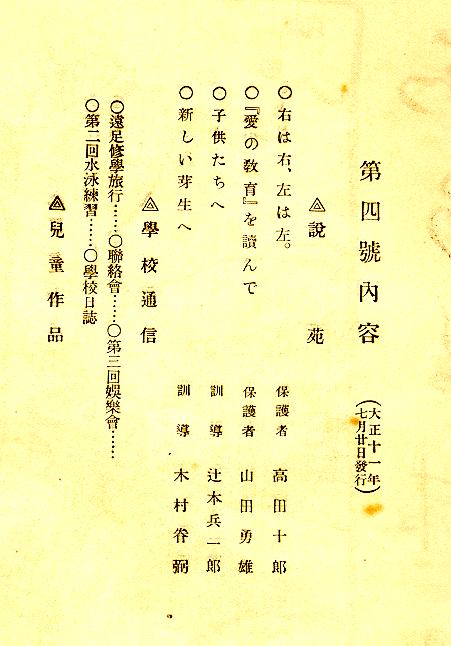 第四號內容
(大正十一年七月廿日發行)
◬說苑
○右は右、左は左。 保護者 高田十郎
○『愛の敎育』を讀んで 保護者 山田勇雄
○子供たちへ 訓導 辻本兵一郎
○新しい芽生へ 訓導 木村眷弼
◬學校通信
○遠足修學旅行……○聯絡會……○第三回娛樂會……
○第二回水泳練習……○學校日誌
◬兒童作品